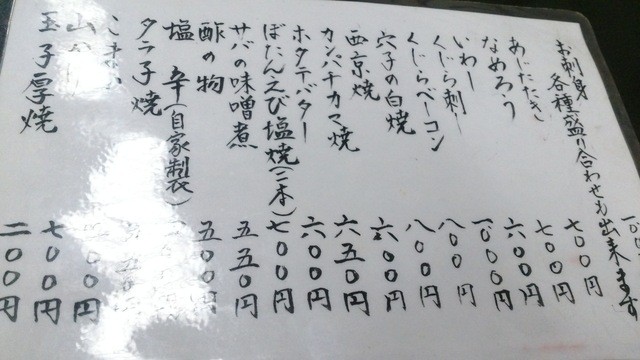 お刺身
各種盛り合わせも出来ます
あじたたき 七〇〇円
なめろう 七〇〇円
いわし 六〇〇円
くじら刺し 一〇〇〇円
くじらベーコン 八〇〇円
穴子の白焼 八〇〇円
西京焼 六〇〇円
カンパチカマ焼 六五〇円
ホタテバター 六〇〇円
ぼたんえび塩焼(二本) 七〇〇円
サバの味噌煮 五五〇円
酢の物 五〇〇円
塩辛(自家製) 円
タラ子焼 円
円
山 七〇〇円
玉子厚焼 二〇〇円